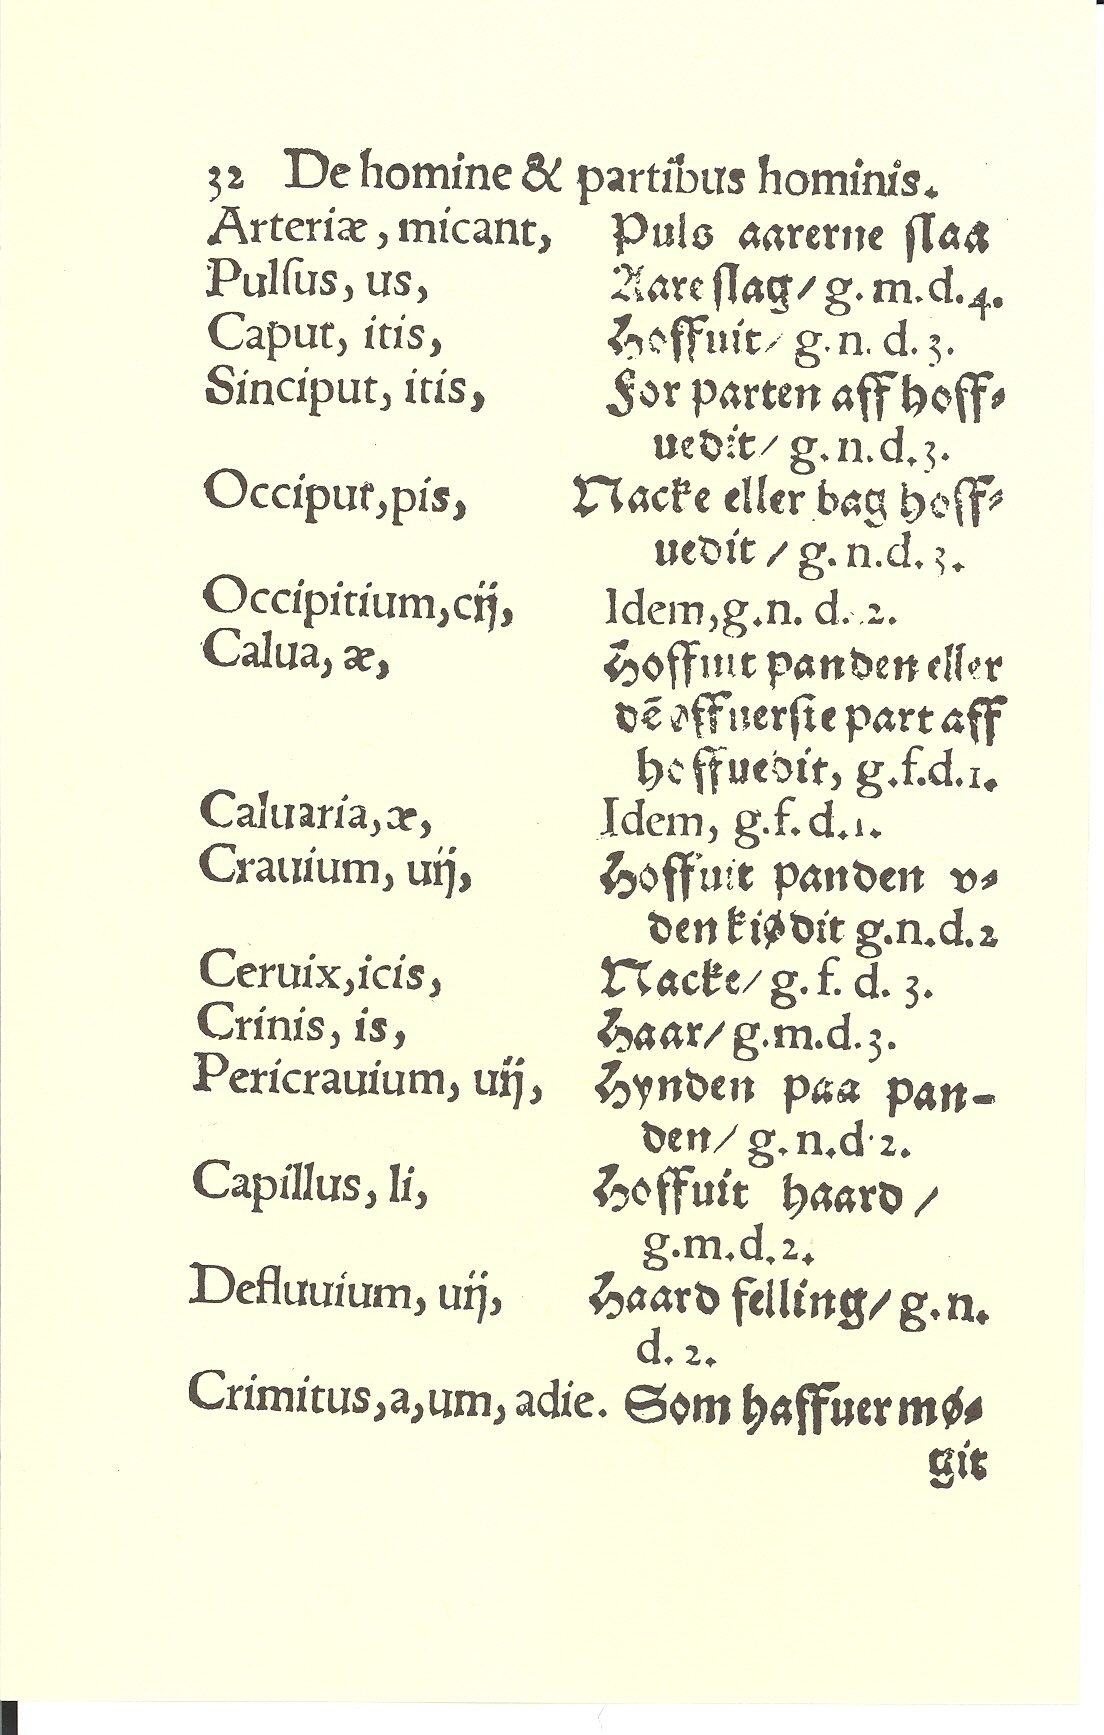 32 De homine & partibus hominis.
Arteriæ, micant, Puls aarerne slaa
Pulsus, us, Aare slag / g. m. d. 4.
Caput, itis, Hoffuit / g. n. d. 3.
Sinciput, itis, For parten aff hoff⸗
uedit / g. n. d. 3.
Occiput, pis, Nacke eller bag hoff⸗
uedit / g. n. d. 3.
Occipitium, cij, Idem, g. n. d. 2.
Calua, æ, Hoffuit panden eller
dē øffuerste part aff
hoffuedit, g. f. d. 1.
Caluaria, æ, Idem, g. f. d. 1.
Crauium, uij, Hoffuit panden v⸗
den kiødit g. n. d. 2
Ceruix, icis, Nacke / g. f. d. 3.
Crinis, is, Haar / g. m. d. 3.
Pericrauium, uij, Hynden paa pan-
den / g. n. d. 2.
Capillus, li, Hoffuit haard /
g. m. d. 2.
Defluuium, uij, Haard felling / g. n.
d. 2.
Crimitus, a, um, adie. Som haffuer mø⸗
git